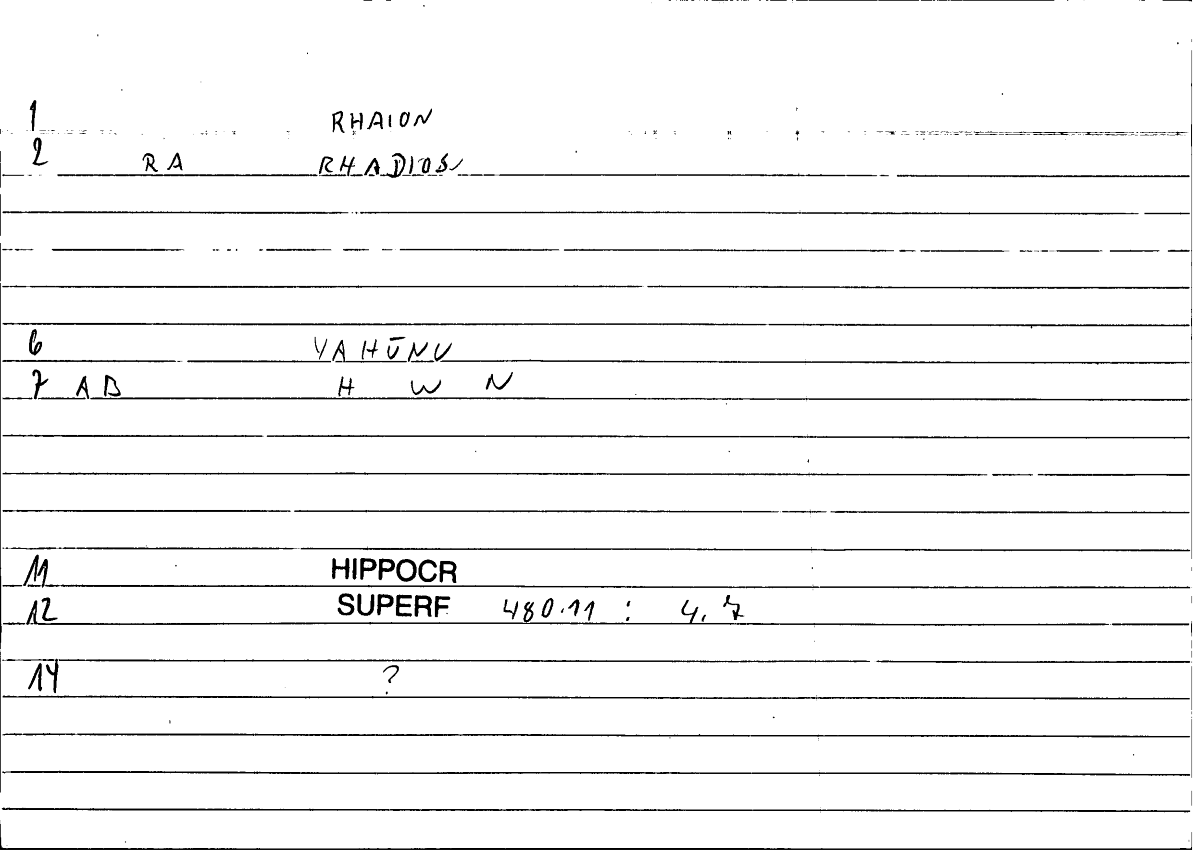 1 RHAION
2 RA RHADIOS
6 YAHŪNU
7 AB H W N
11 HIPPOCR
12 SUPERF 480.11 : 4,7
14 ?